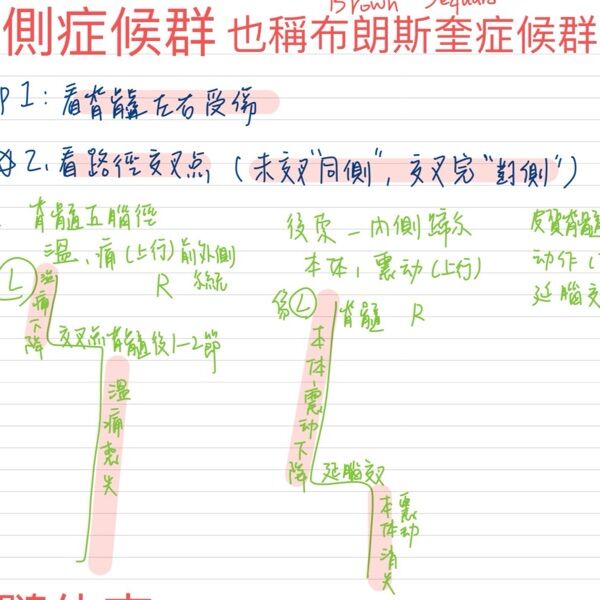 Brown Sequard
側症候群 也稱布朗斯奎症候群
p 1：看脊髓左右受傷
2、看路徑交叉点（未交叉"同側"，交叉完"對側"）
脊髓丘腦徑
溫、痛(上行)前外側
L R 系統
溫痛下降
交叉点脊髓後1-2節
溫痛喪失
後束－內側蹄系
本体、震动(上行)
傷 L 脊髓 R
本体震动下降
延腦交叉
本体震动消失
皮質脊髓
动作(
延腦交